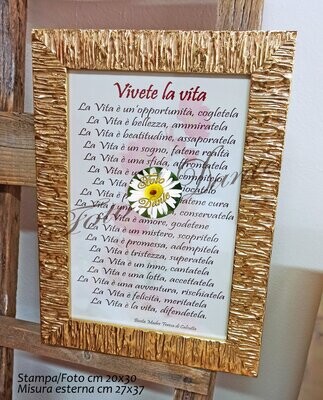 Vivete la vita
La Vita è un'opportunità, coglietela
La Vita è bellezza, ammiratela
La Vita è beatitudine, assaporatela
La Vita è un sogno, fatene realtà
La Vita è una sfida, affrontatela
La Vita è
compitelo
La Vita è
giocatelo
La Vita è
fatene cura
La Vita è
conservatela
La Vita è amore, godetene
La Vita è un mistero, scopritelo
La Vita è promessa, adempitela
La Vita è tristezza, superatela
La Vita è un inno, cantatela
La Vita è una lotta, accettatela
La Vita è una avventura, rischiatela
La Vita è felicità, meritatela
La Vita è la vita, difendetela.
Beata Madre Teresa di Calcutta
Stampa/Foto cm 20x30
Misura esterna cm 27x37